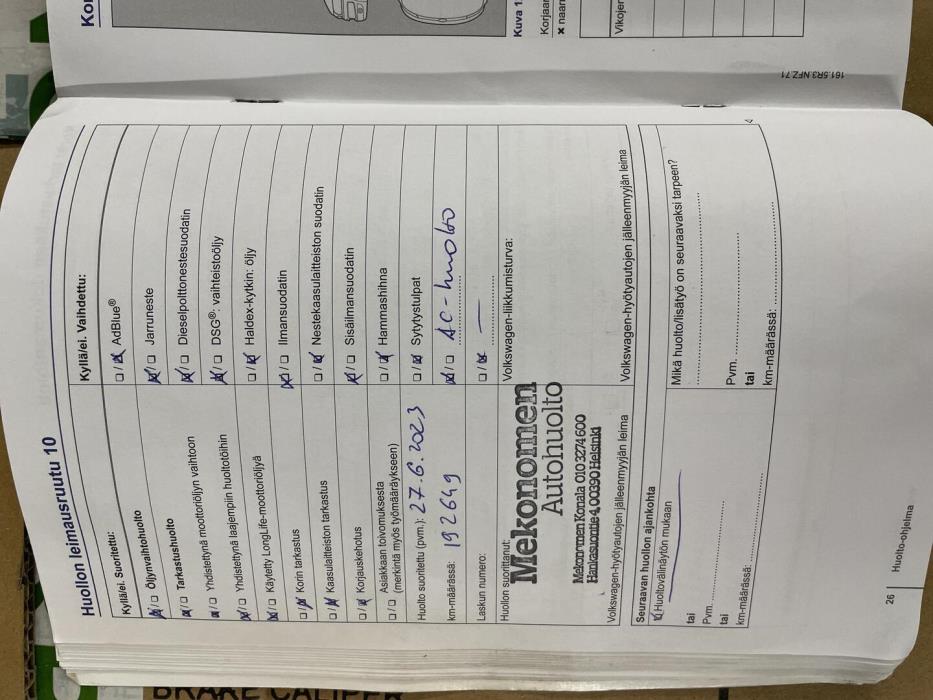 Huollon leimausruutu 10
Kyllä/ei. Suoritettu:
Öljynvaihtohuolto
Tarkastushuolto
Yhdistettynä moottoriöljyn vaihtoon
Yhdistettynä laajempiin huoltotöihin
Käytetty LongLife-moottoriöljyä
Korin tarkastus
Kaasulaitteiston tarkastus
Korjauskehotus
Asiakkaan toivomuksesta
(merkintä myös työmääräykseen)
Huolto suoritettu (pvm.): 27.6.2023
km-määrässä: 192649
Laskun numero:
Huollon suorittanut:
Mekonomen
Autohuolto
Mekonomen Konala 010 3274600
Hankasuontie 4, 00390 Helsinki
Volkswagen-hyötyautojen jälleenmyyjän leima
Kyllä/ei. Vaihdettu:
AdBlue®
Jarruneste
Dieselpolttonestesuodatin
DSG®: vaihteistoöljy
Haldex-kytkin: öljy
Ilmansuodatin
Nestekaasulaitteiston suodatin
Sisäilmansuodatin
Hammashihna
Sytytystulpat
AC-huolto
Volkswagen-liikkumisturva:
Volkswagen-hyötyautojen jälleenmyyjän leima
Seuraavan huollon ajankohta
Huoltovälinäytön mukaan
tai
Pvm.
tai
km-määrässä:
Mikä huolto/lisätyö on seuraavaksi tarpeen?
Pvm.
tai
km-määrässä:
26
Huolto-ohjelma
Kor
Kuva 1
Korjaam
× naarm
Vikojen
161.5R3.NFZ.71
BRAKE CALIPER